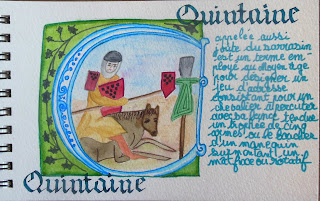 Quintaine
appelée aussi
joute du sarrasin
est un terme em
ployé au Moyen âge
pour désigner un
jeu d'adresse
consistant pour un
chevalier à percuter
avec sa lance tendue
un trophée de cinq
armes, ou le bouclier
d'un manequin
surmontant un
mat fixe ou rotatif
Quintaine